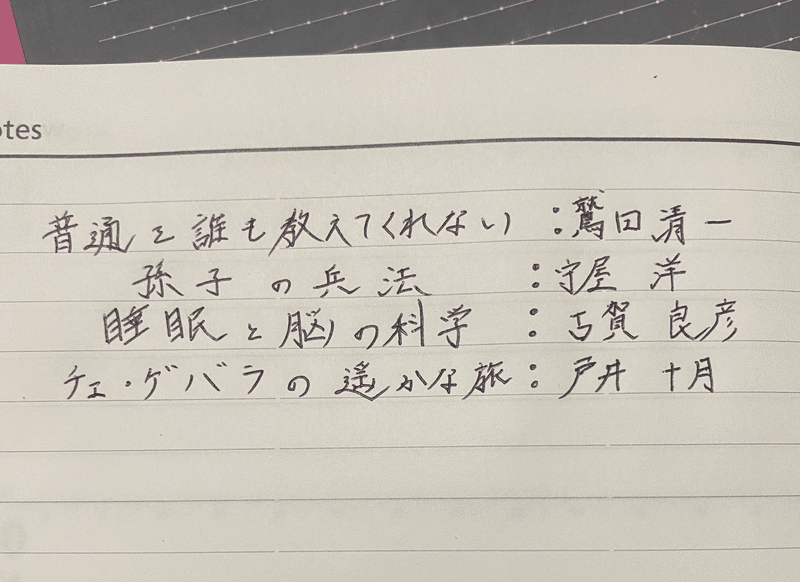 otes
普通を誰も教えてくれない：鷲田清一
孫子の兵法：守屋 洋
睡眠と脳の科学：古賀 良彦
チェ・ゲバラの遥かな旅：戸井 十月